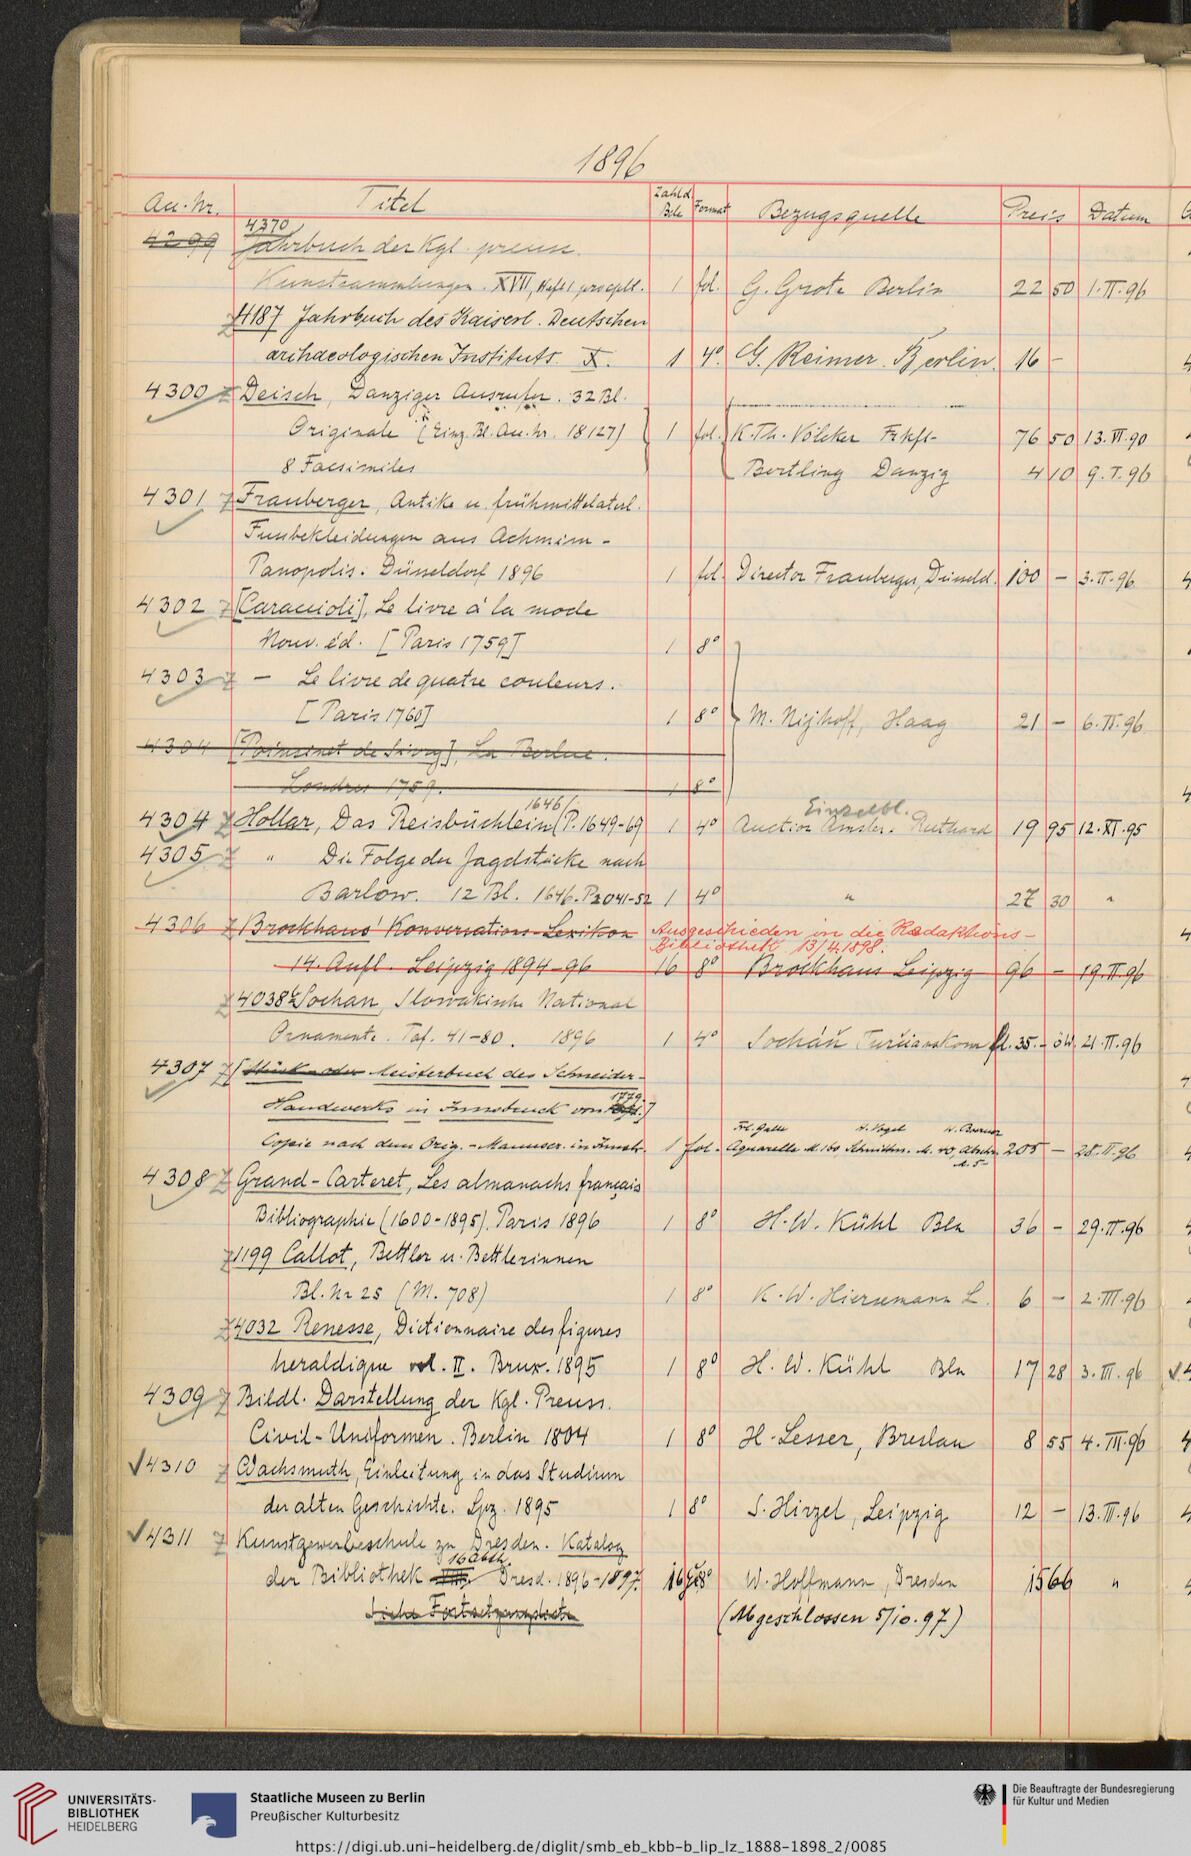 1896
Acc. Nr. Titel Zahl d. Bde Format Bezugsquelle Preis Datum
4299 4370
Jahrbuch der Kgl. preuss.
Kunstsammlungen. XVII, Heft 1 pro cplt. 1 fol. G. Grote Berlin 22 50 1.II.96
4187 Jahrbuch des Kaiserl. Deutschen
archaeologischen Instituts. X. 1 4° G. Reimer. Berlin. 16 –
4300 Z Deisch, Danziger Ausrufer. 32 Bl.
Originale (Einz. Bl. Acc. Nr. 18127) 1 fol. K. Th. Völcker Frkft– 76 50 13.VI.90
8 Facsimiles Bertling Danzig 4 10 9.I.96
4301 Z Frauberger, Antike u. frühmittelalterl.
Fussbekleidungen aus Achmim-
Panopolis. Düsseldorf 1896 1 fol. Director Frauberger, Düsseld. 100 – 3.II.96
4302 Z [Caraccioli], Le livre à la mode
Nouv. éd. [Paris 1759] 1 8°
4303 Z – Le livre de quatre couleurs.
[Paris 1760] 1 8° M. Nijhoff, Haag 21 – 6.II.96
4304 [Poinsinet de Sivry], La Berlue.
Londres 1759. 1 8°
1646/ Einzelbl.
4304 Z Hollar, Das Reisbüchlein (P. 1649-69 1 4° Auction Amsler. Ruthard 19 95 12.XI.95
4305 Z " Die Folge der Jagdstücke nach
Barlow. 12 Bl. 1646. P. 2041-52 1 4° " 27 30 "
4306 Z Brockhaus' Konversations-Lexikon Ausgeschieden in die Redaktions-
Bibliothek 13/4.1898.
14. Aufl. Leipzig 1894-96 16 8° Brockhaus Leipzig 96 – 19.II.96
Z 4038 Sochan, Slowakische National
Ornamente. Taf. 41-80. 1896 1 4° Socháň fl. 35. – ö W. 21.II.96
4307 Z [Stück- oder Meisterbuch des Schneider-
Handwerks in Innsbruck von 1779.]
Frl. Galle H. Vogel W. Berner
Copie nach dem Orig.-Manuscr. in Innsbr. 1 fol. Aquarelle M. 160, Schnittm. M. 40, Abschr. M. 5– 205 – 28.II.96
4308 Z Grand-Carteret, Les almanachs français
Bibliographie (1600-1895). Paris 1896 1 8° H. W. Kühl Bln 36 – 29.II.96
Z 1199 Callot, Bettler u. Bettlerinnen
Bl. Nr 25 (M. 708) 1 8° K. W. Hiersemann L. 6 – 2.III.96
Z 4032 Renesse, Dictionnaire des figures
heraldique vol. II. Brux. 1895 1 8° H. W. Kühl Bln 17 28 3.III.96
4309 Z Bildl. Darstellung der Kgl. Preuss.
Civil-Uniformen. Berlin 1804 1 8° H. Lesser, Breslau 8 55 4.III.96
4310 Z Wachsmuth, Einleitung in das Studium
der alten Geschichte. Lpz. 1895 1 8° S. Hirzel, Leipzig 12 – 13.III.96
4311 Z Kunstgewerbeschule zu Dresden. Katalog
16 Abth.
der Bibliothek Dresd. 1896-1897. 16 8° W. Hoffmann, Dresden 15 66 "
Siehe Fortsetzungsliste (Abgeschlossen 5/10.97)
UNIVERSITÄTS-
BIBLIOTHEK
HEIDELBERG
Staatliche Museen zu Berlin
Preußischer Kulturbesitz
Die Beauftragte der Bundesregierung
für Kultur und Medien
https://digi.ub.uni-heidelberg.de/diglit/smb_eb_kbb-b_lip_lz_1888-1898_2/0085